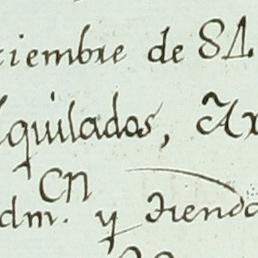 ciembre de 81
lquilados, Ax
en
dm. y tiendo